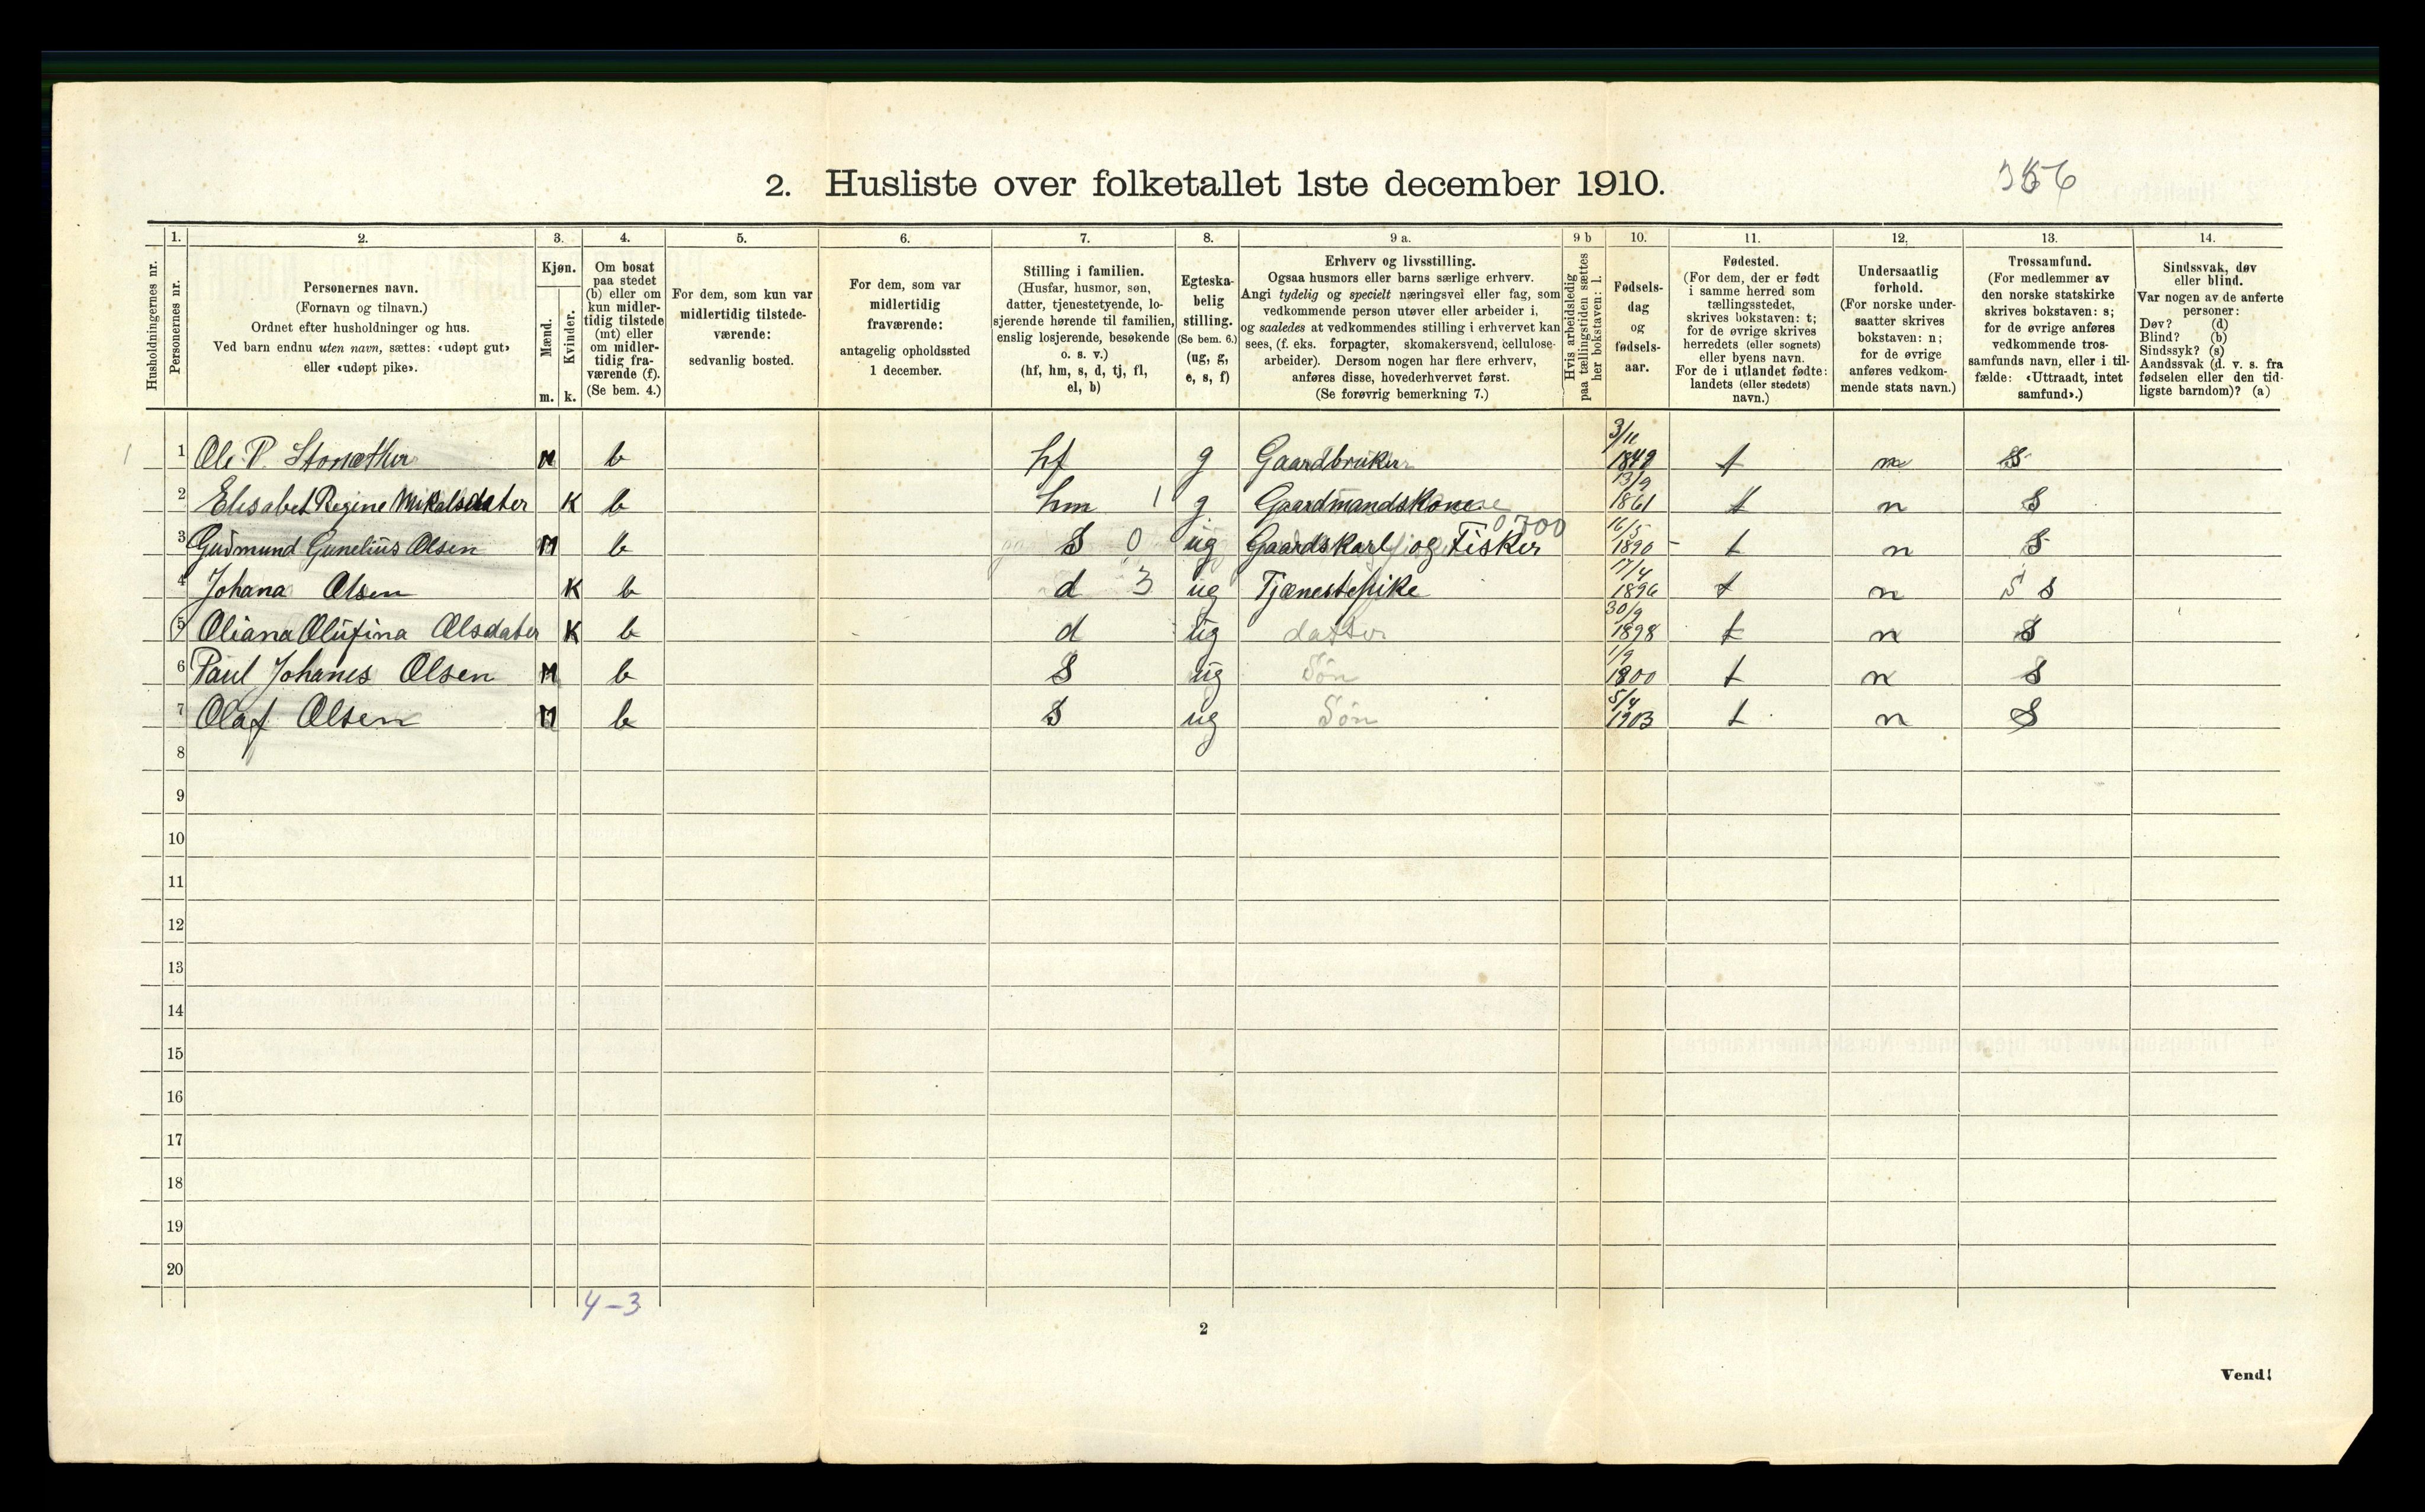 2. Husliste over folketallet 1ste december 1910.
Husholdningernes nr.
1.
Personernes nr.
2.
Personernes navn.
(Fornavn og tilnavn.)
Ordnet efter husholdninger og hus.
Ved barn endnu uten navn, sættes: «udøpt gut»
eller «udøpt pike».
3.
Kjøn.
Mænd.
Kvinder.
m. k.
4.
Om bosat
paa stedet
(b) eller om
kun midler-
tidig tilstede
(mt) eller
om midler-
tidig fra-
værende (f).
(Se bem. 4.)
5.
For dem, som kun var
midlertidig tilstede-
værende:
sedvanlig bosted.
6.
For dem, som var
midlertidig
fraværende:
antagelig opholdssted
1 december.
7.
Stilling i familien.
(Husfar, husmor, søn,
datter, tjenestetyende, lo-
sjerende hørende til familien,
enslig losjerende, besøkende
o. s. v.)
(hf, hm, s, d, tj, fl,
el, b)
8.
Egteska-
belig
stilling.
(Se bem. 6.)
(ug, g,
e, s, f)
9 a.
Erhverv og livsstilling.
Ogsaa husmors eller barns særlige erhverv.
Angi tydelig og specielt næringsvei eller fag, som
vedkommende person utøver eller arbeider i,
og saaledes at vedkommendes stilling i erhvervet kan
sees, (f. eks. forpagter, skomakersvend, cellulose-
arbeider). Dersom nogen har flere erhverv,
anføres disse, hovederhvervet først.
(Se forøvrig bemerkning 7.)
9 b
Hvis arbeidsledig
paa tællingstiden sættes
her bokstaven: l.
10.
Fødsels-
dag
og
fødsels-
aar.
11.
Fødested.
(For dem, der er født
i samme herred som
tællingsstedet,
skrives bokstaven: t;
for de øvrige skrives
herredets (eller sognets)
eller byens navn.
For de i utlandet fødte:
landets (eller stedets)
navn.)
12.
Undersaatlig
forhold.
(For norske under-
saatter skrives
bokstaven: n;
for de øvrige
anføres vedkom-
mende stats navn.)
13.
Trossamfund.
(For medlemmer av
den norske statskirke
skrives bokstaven: s;
for de øvrige anføres
vedkommende tros-
samfunds navn, eller i til-
fælde: «Uttraadt, intet
samfund».)
14.
Sindssvak, døv
eller blind.
Var nogen av de anførte
personer:
Døv? (d)
Blind? (b)
Sindssyk? (s)
Aandssvak (d. v. s. fra
fødselen eller den tid-
ligste barndom)? (a)
1 1 Ole P. M b hf g Gaardbruker 3/11 t n S
2 Elisabet Regine Mikalsdater K b hm 1 g Gaardmandskone 13/9 1861 t n S
3 Gudmund Gunelius Olsen M b S 0 ug Gaardskarl og Fisker 0700 16/5 1890 t n S
4 Johana Olsen K b d 3 ug Tjænestepike 17/4 1896 t n S S
5 Oliana Olufina Olsdater K b d ug datter 30/9 1898 t n S
6 Paul Johanes Olsen M b S ug Søn 1/9 t n S
7 Olaf Olsen M b S ug Søn 5/4 1903 t n S
8
9
10
11
12
13
14
15
16
17
18
19
20
4-3
2
Vend!